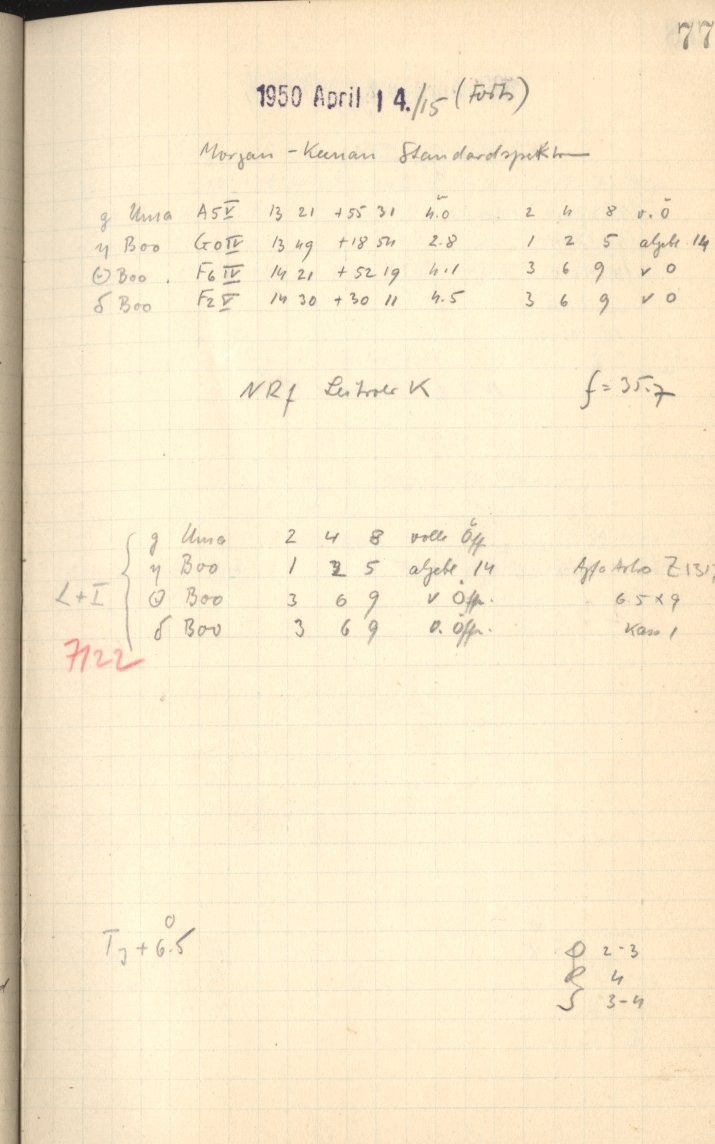 77
1950 April 14./15 (Forts)
Morgan - Keenan Standardspektren
g Uma A5V 13 21 +55 31 4.0 2 4 8 v. Ö
η Boo G0IV 13 49 +18 54 2.8 1 2 5 abgebl. 14
Θ Boo. F6IV 14 21 +52 19 4.1 3 6 9 v O
δ Boo F2V 14 30 +30 11 4.5 3 6 9 v O
NRf K f = 35.7
g Uma 2 4 8 volle Öff
η Boo 1 2 5 abgebl 14 Agfa Astro Z 131
L+I Θ Boo 3 6 9 v Öffn. 6.5 x 9
δ Boo 3 6 9 v. Öffn. Kass 1
7122
T +6.5° 2-3
4
3-4